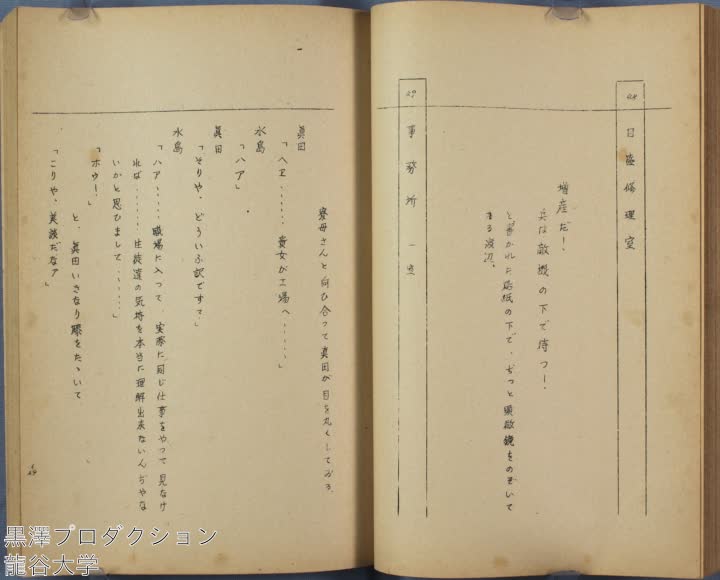 28 目盛修理室
増産だ!
兵は敵機の下で待つ!
と書かれた貼紙の下で、ぢっと顕微鏡をのぞいて
ゐる渡辺。
29 事務所 一室
寮母さんと向ひ合って眞田が目を丸くしてゐる。
眞田
「ヘエ……貴女が工場へ……」
水島
「ハア」
眞田
「そりや、どういふ訳ですて?」
水島
「ハア……職場に入って、実際に同じ仕事をやって見なけ
れば……生徒達の気持を本当に理解出来ないんぢやな
いかと思ひまして……」
「ホウ!」
と、眞田いきなり膝をたゝいて
「こりや、美談だなア」
黒澤プロダクション
龍谷大学